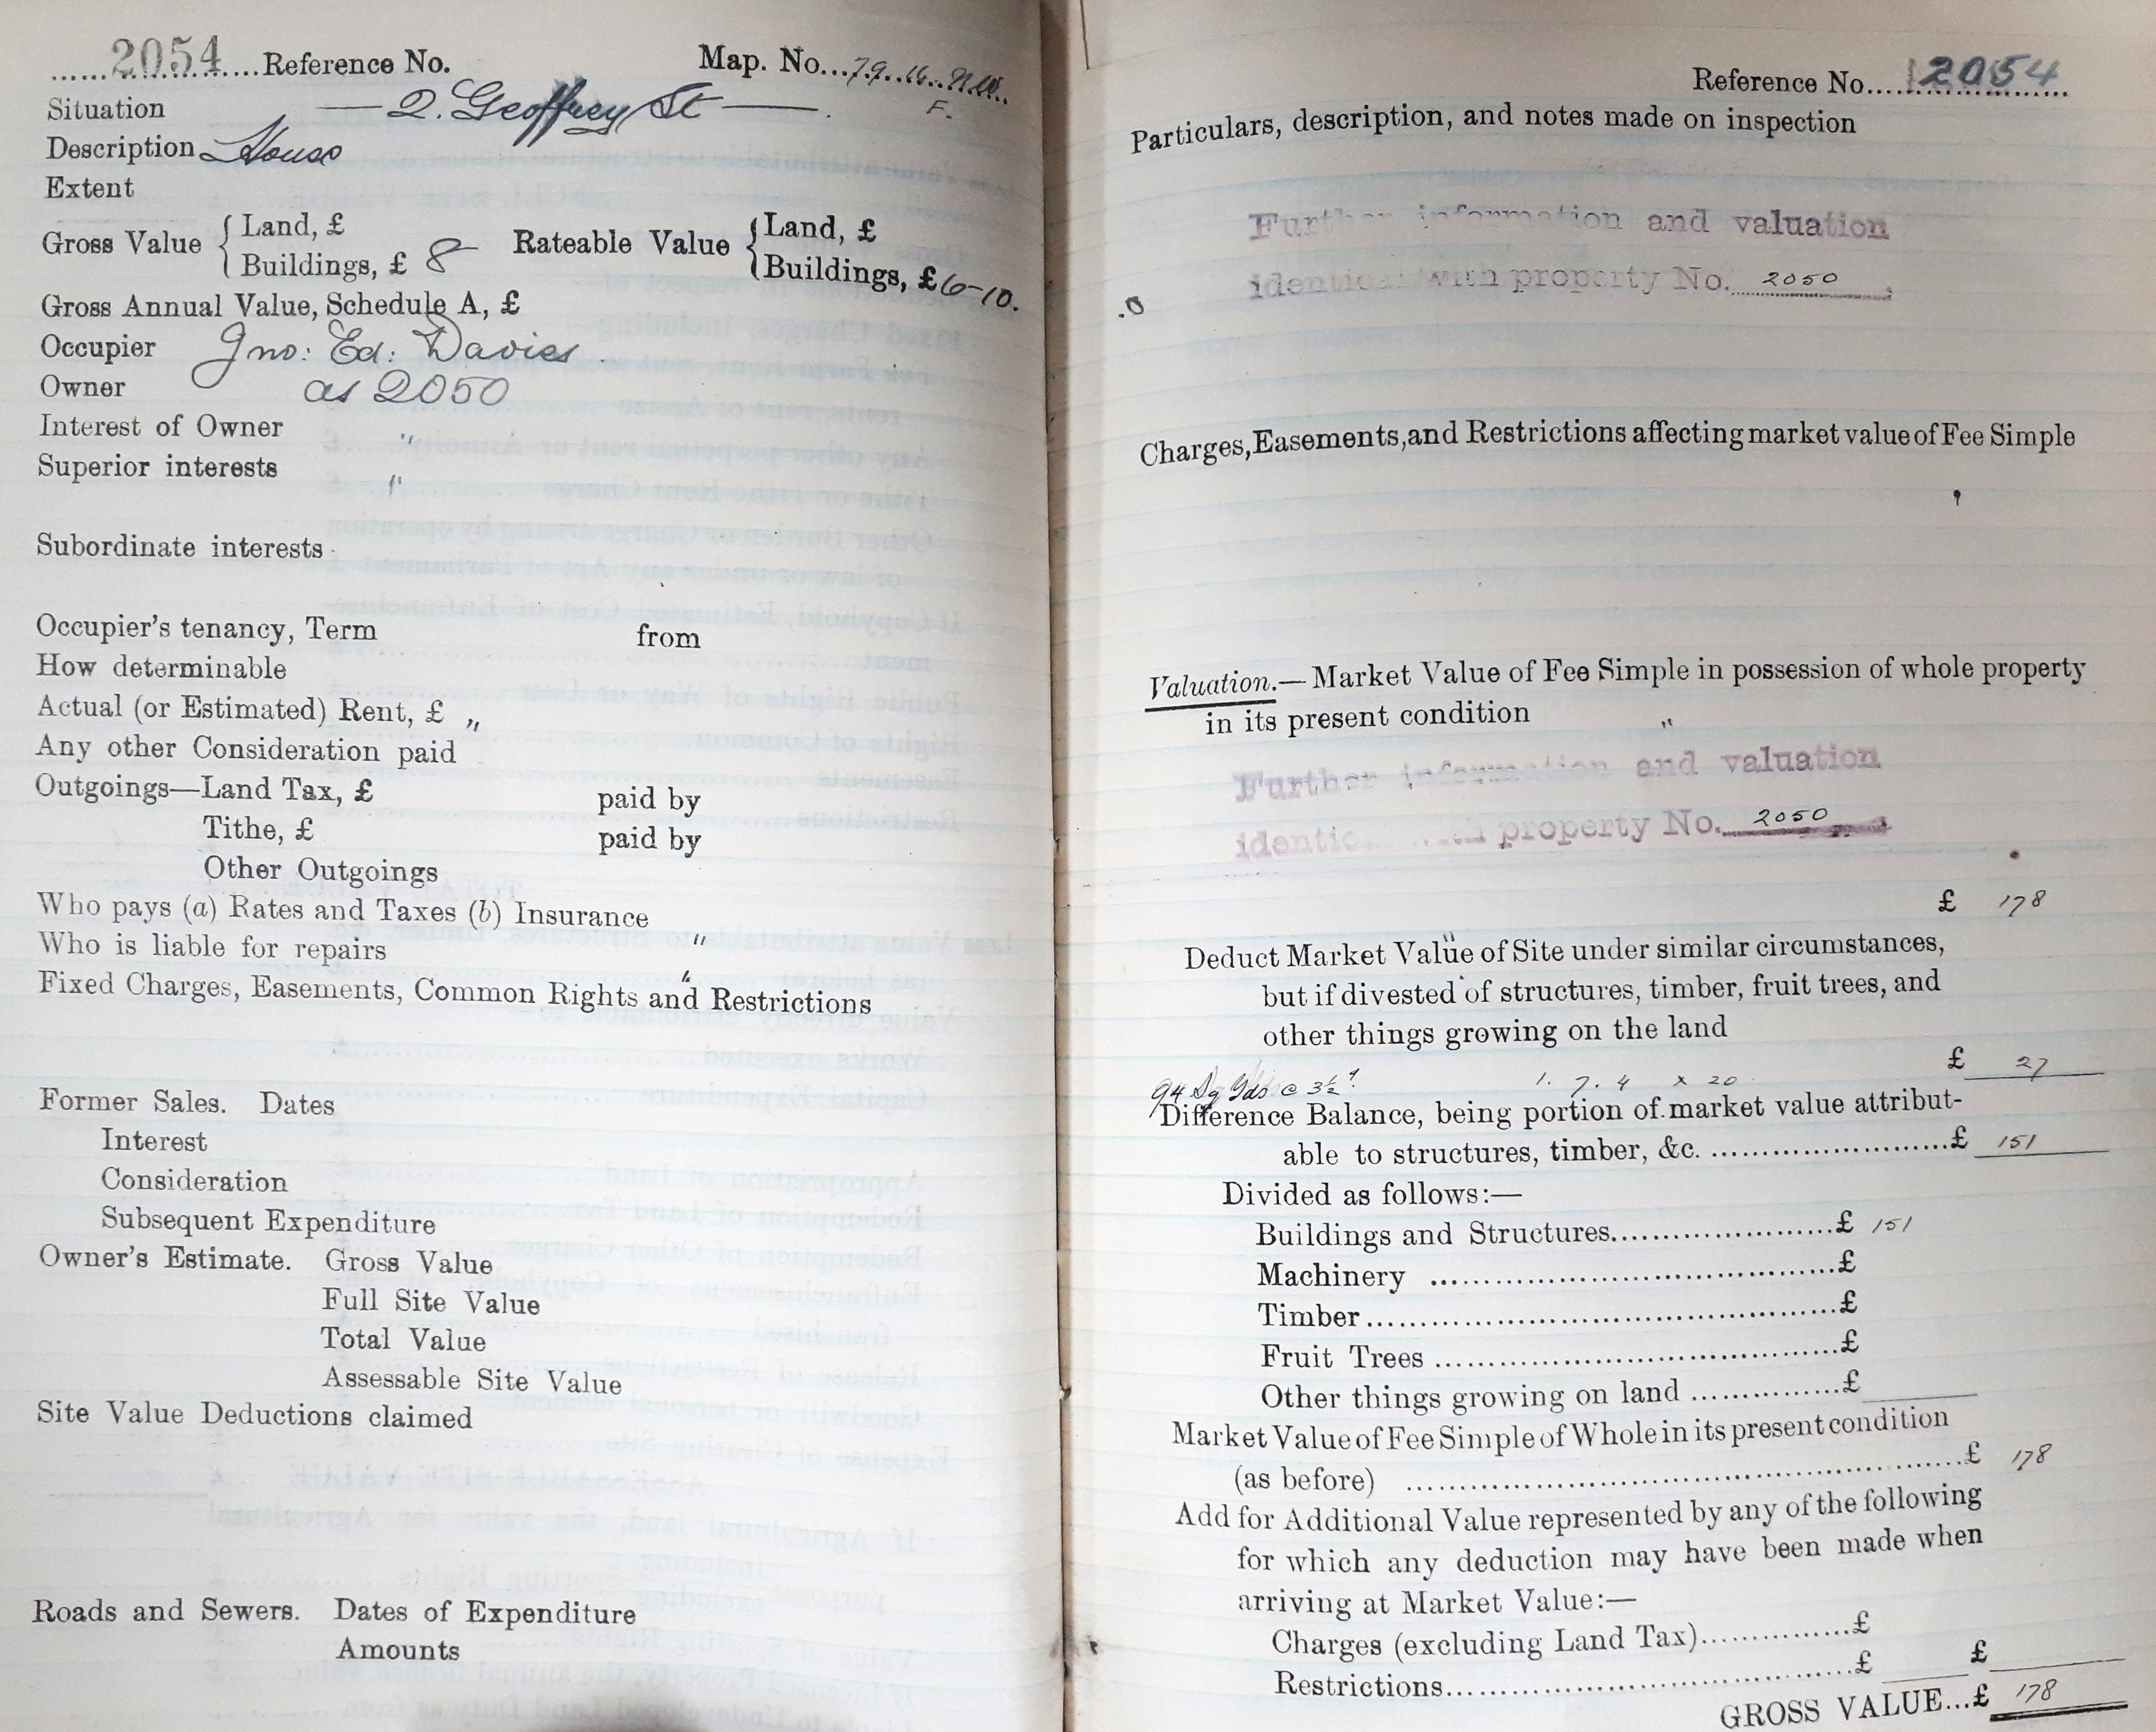 2054 Reference No. Map. No. 79.16.
Situation — 2. Geoffrey St —. F.
Description House
Extent
Gross Value { Land, £ Rateable Value { Land, £
Buildings, £ 8 — Buildings, £ 6-10.
Gross Annual Value, Schedule A, £
Occupier Jno: Ed: Davies
Owner as 2050
Interest of Owner "
Superior interests "
Subordinate interests
Occupier's tenancy, Term from
How determinable
Actual (or Estimated) Rent, £ "
Any other Consideration paid
Outgoings—Land Tax, £ paid by
Tithe, £ paid by
Other Outgoings
Who pays (a) Rates and Taxes (b) Insurance
Who is liable for repairs "
Fixed Charges, Easements, Common Rights and Restrictions
Former Sales. Dates
Interest
Consideration
Subsequent Expenditure
Owner's Estimate. Gross Value
Full Site Value
Total Value
Assessable Site Value
Site Value Deductions claimed
Roads and Sewers. Dates of Expenditure
Amounts
Reference No. 2054
Particulars, description, and notes made on inspection
Further information and valuation
identical with property No. 2050
Charges, Easements, and Restrictions affecting market value of Fee Simple
Valuation.—Market Value of Fee Simple in possession of whole property
in its present condition "
Further information and valuation
identical with property No. 2050
£ 178
Deduct Market Value of Site under similar circumstances,
but if divested of structures, timber, fruit trees, and
other things growing on the land
£ 27
94 Sq Yds @ 3½ d 1. 7. 4 x 20
Difference Balance, being portion of market value attribut-
able to structures, timber, &c. £ 151
Divided as follows:—
Buildings and Structures £ 151
Machinery £
Timber £
Fruit Trees £
Other things growing on land £
Market Value of Fee Simple of Whole in its present condition
(as before) £ 178
Add for Additional Value represented by any of the following
for which any deduction may have been made when
arriving at Market Value:—
Charges (excluding Land Tax) £
Restrictions £ £
GROSS VALUE...£ 178